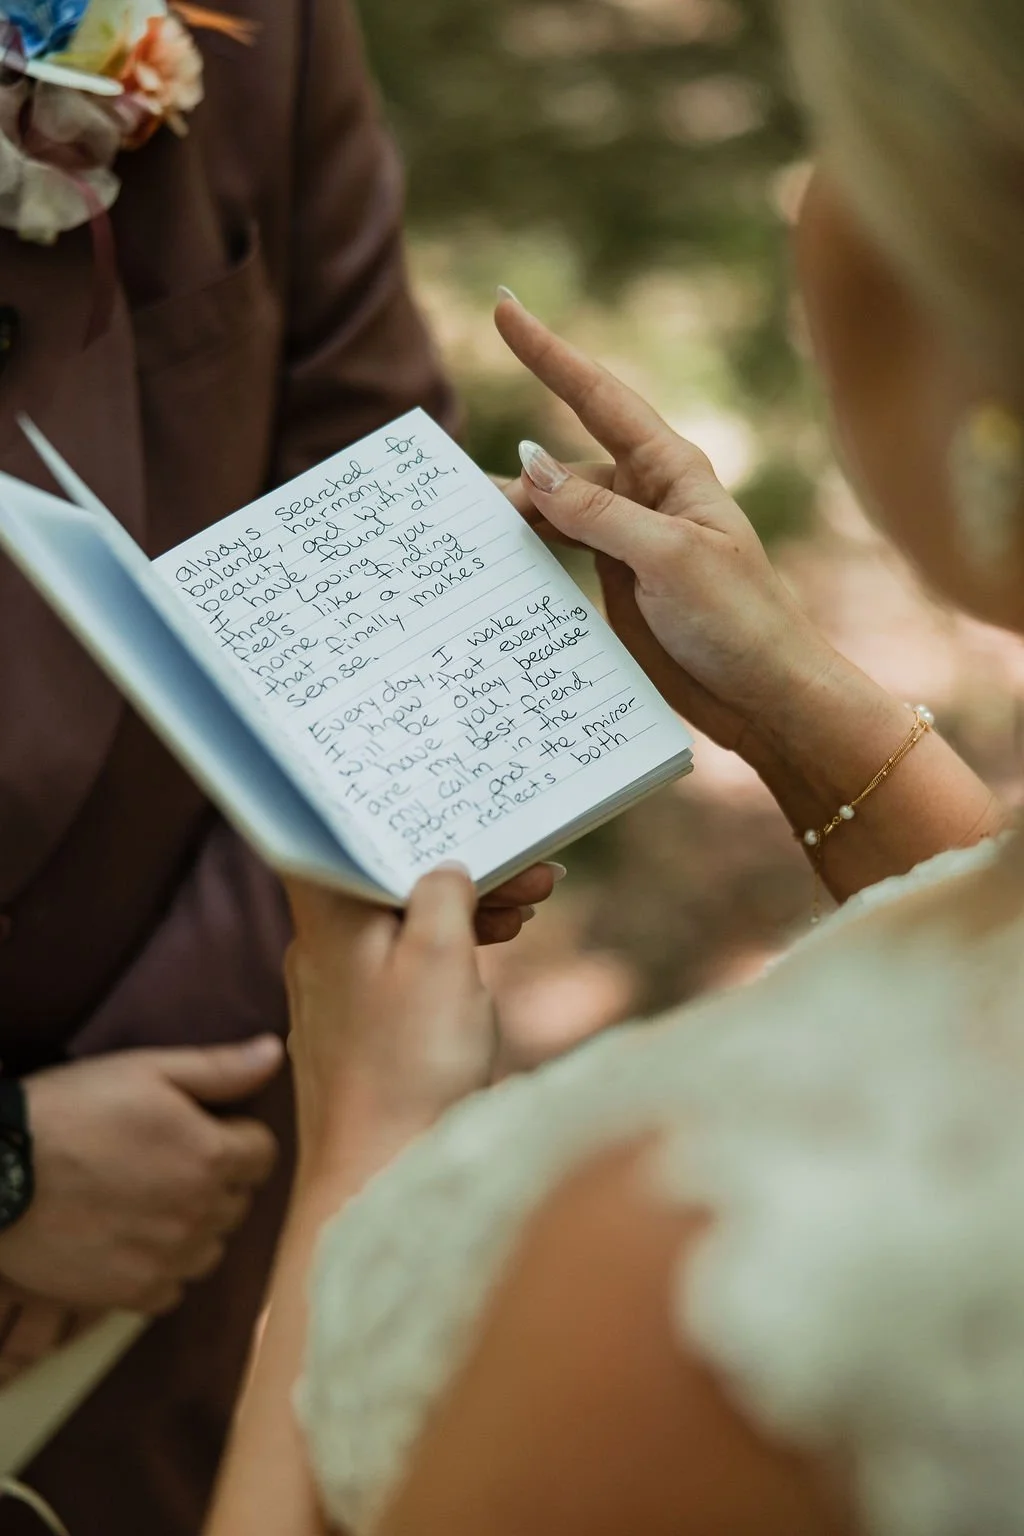 always searched for
balance, harmony, and
beauty and with you,
I have found all
three. Loving you
feels like finding
home in a world
that finally makes
sense.
Every day, I wake up
I know that everything
will be okay because
I have you. You
are my best friend,
my calm in the
storm, and the mirror
that reflects both